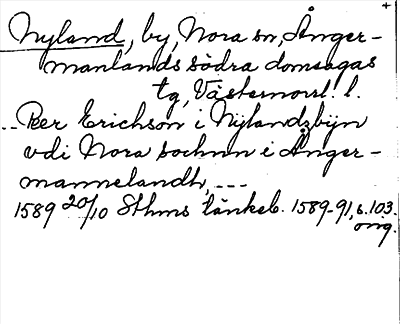 Nyland, by, Nora sn, Ånger-
manlands södra domsagas
tg, Västernorrl. l.
... Peer Erichson i Nylandzbÿn
vdi Nora sochnn i Ånger-
mannelandh, ---
1589 20/10 Sthms tänkeb. 1589-91, s. 103.
orig.